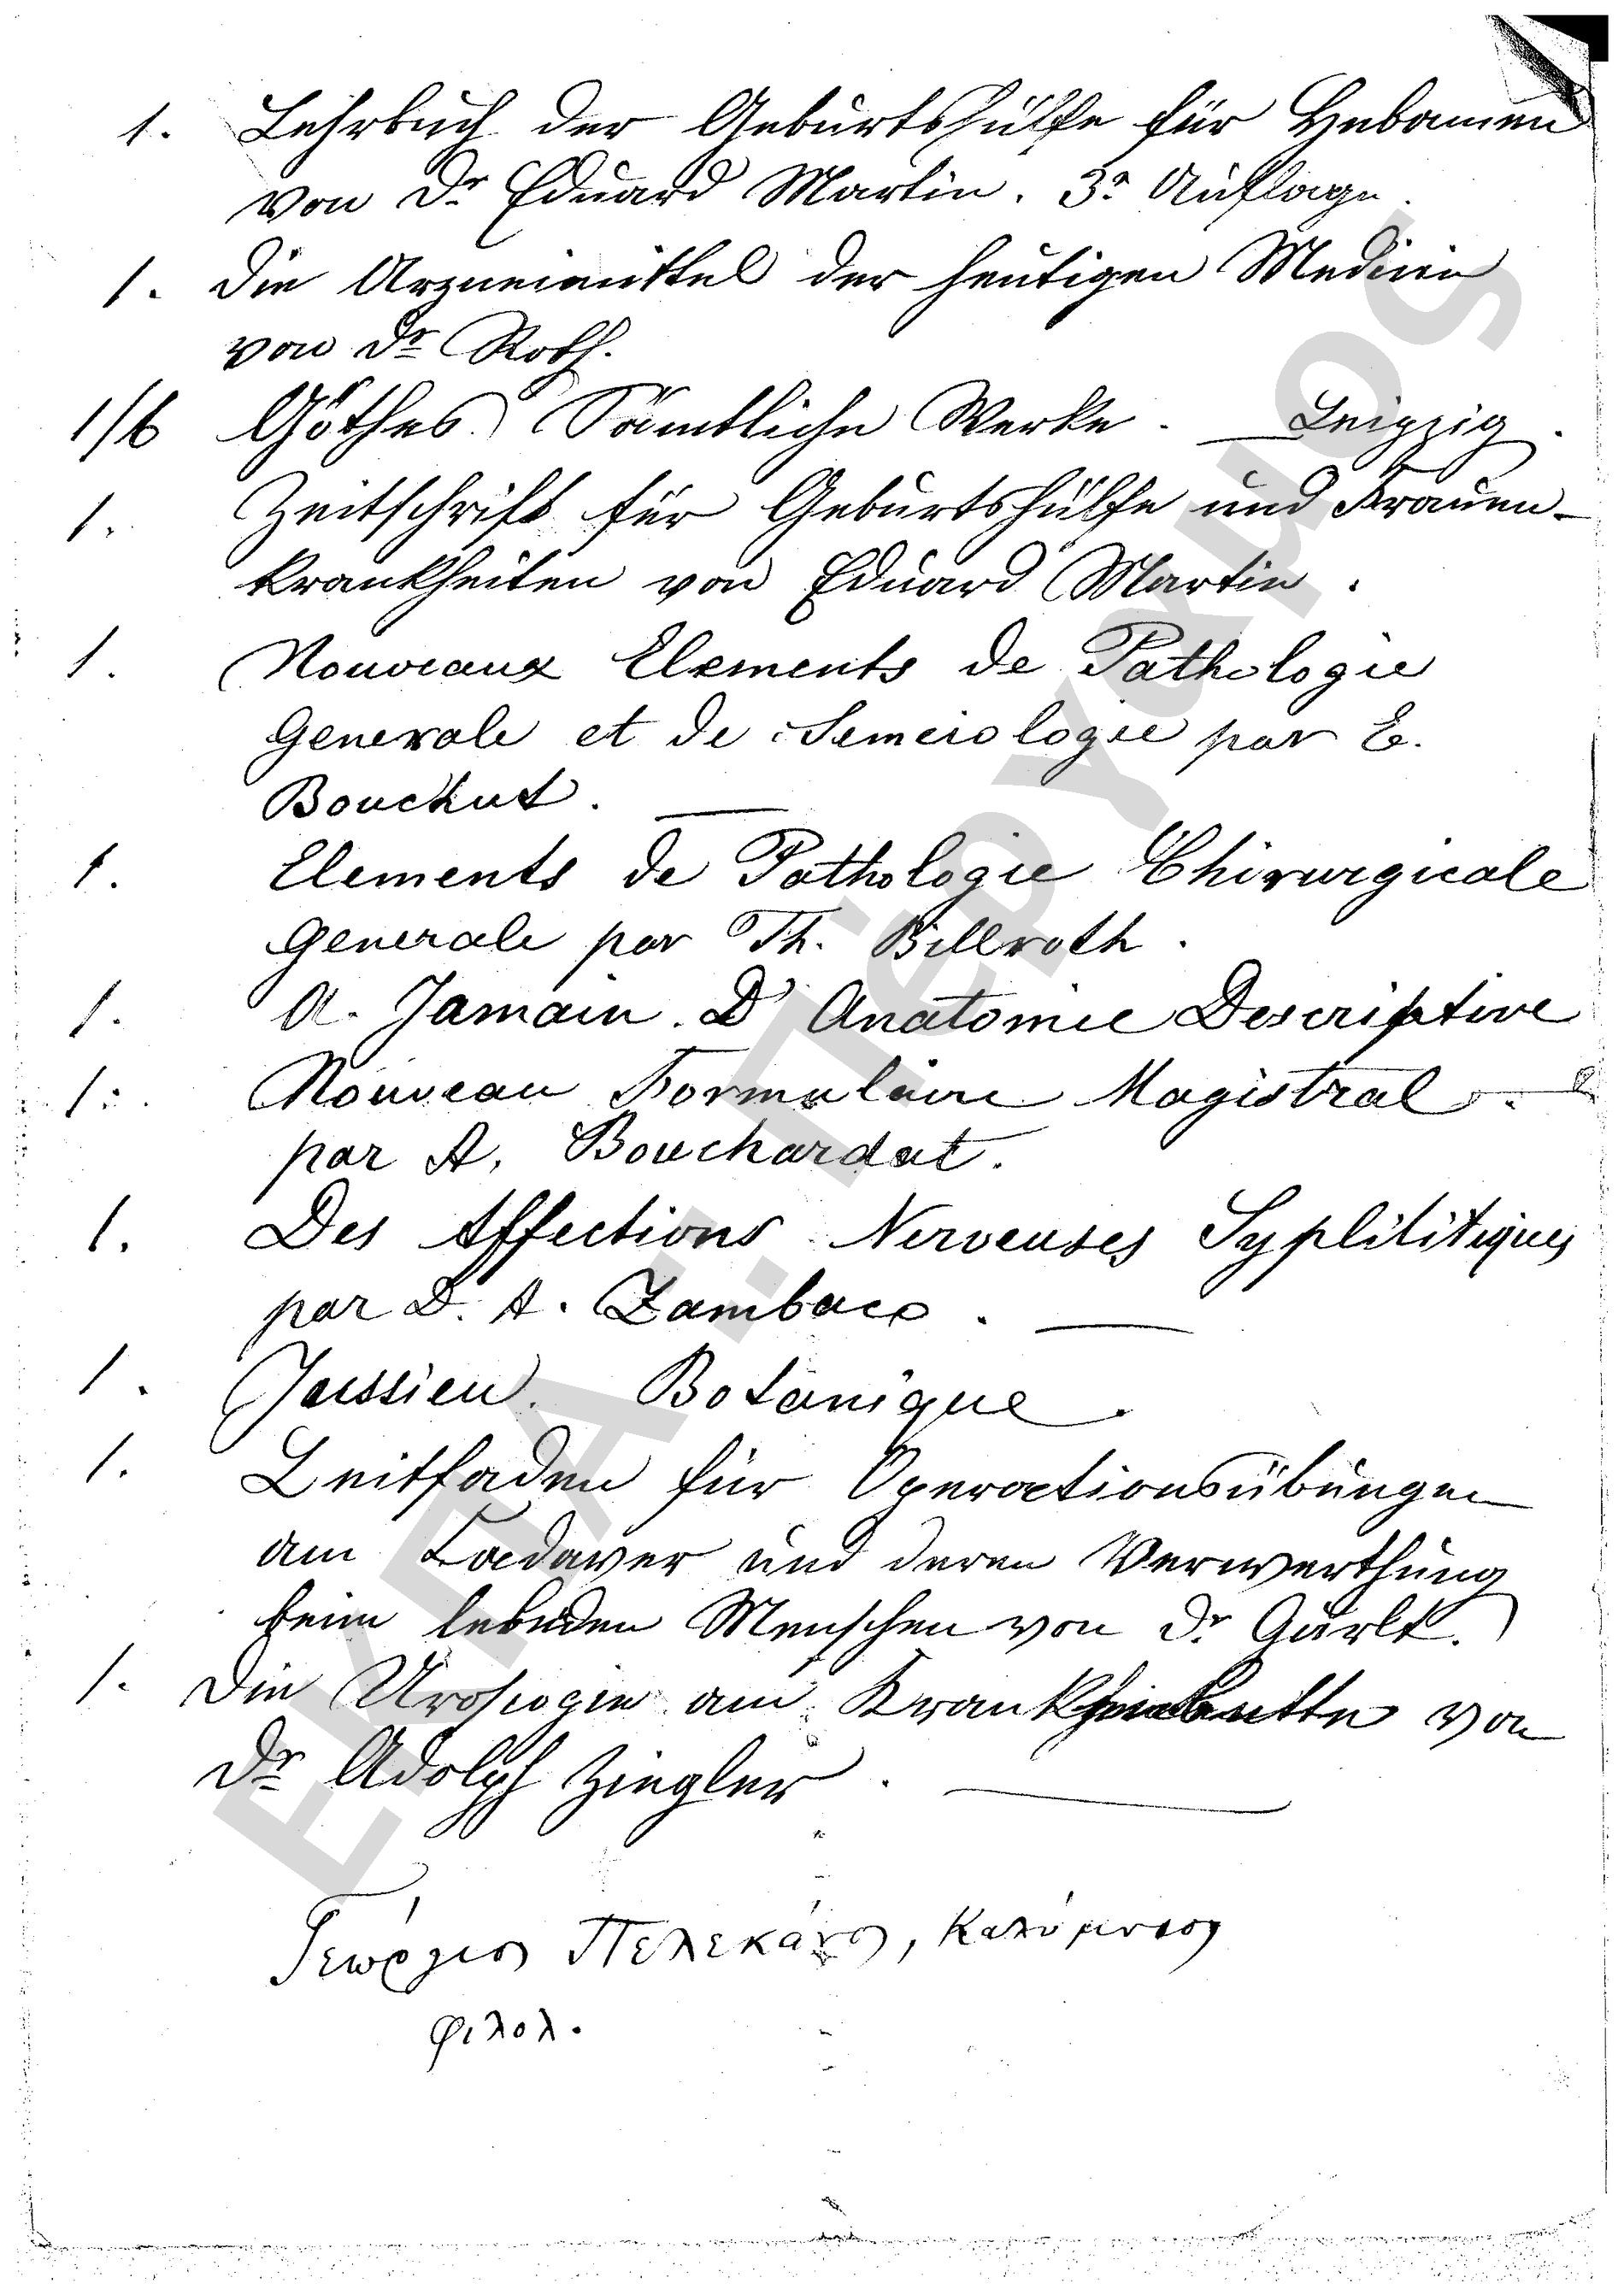 1. Lehrbuch der Geburtshülfe für Hebamen
von Dr Eduard Martin. 3e Auflage.
1. Die Arzneimittel der heutigen Medicin
von Dr Roth.
1/6 Göthes Sämtliche Werke. — Leipzig.
1. Zeitschrift für Geburtshülfe und Frauen-
krankheiten von Eduard Martin.
1. Nouveaux Elements de Pathologie
Generale et de Semeiologie par E.
Bouchut. —
1. Elements de Pathologie Chirurgicale
Generale par Th. Billroth.
1. A. Jamain. D' Anatomie Descriptive
1. Nouveau Formulaire Magistral
par A. Bouchardat.
1. Des Affections Nerveuses Syplilitiques
par D. A. Zambaco. —
1. Jussieu. Botanique.
1. Leitfaden für Operationsübungen
am Cadaver und deren Verwerthung
beim lebenden Menschen von Dr Gurlt.
1. Die Uroscopie am von
Dr Adolph Ziegler. —
Γεώργιος Πελεκάνος, Καλύμνιος
φιλολ.
ΕΚΠΑ.: Τέρ Υόχμος